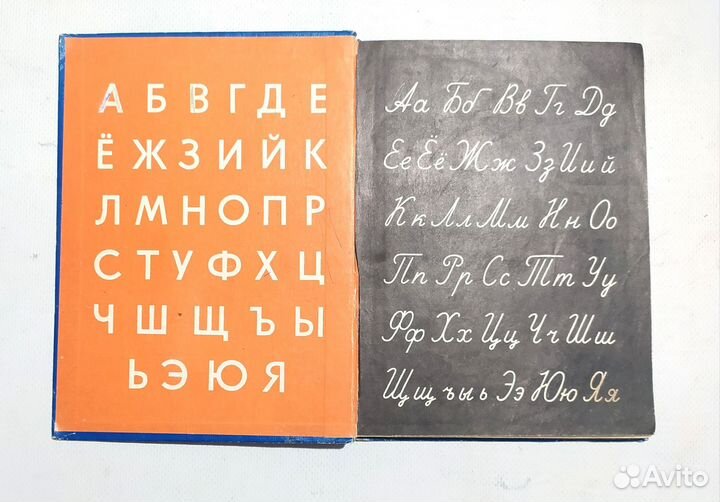 А Б В Г Д Е
Ё Ж З И Й К
Л М Н О П Р
С Т У Ф Х Ц
Ч Ш Щ Ъ Ы
Ь Э Ю Я
Аа Бб Вв Гг Дд
Ее Ёё Жж Зз Ии й
Кк Лл Мм Нн Оо
Пп Рр Сс Тт Уу
Фф Хх Цц Чч Шш
Щщ ъ ы ь Ээ Юю Яя
Avito